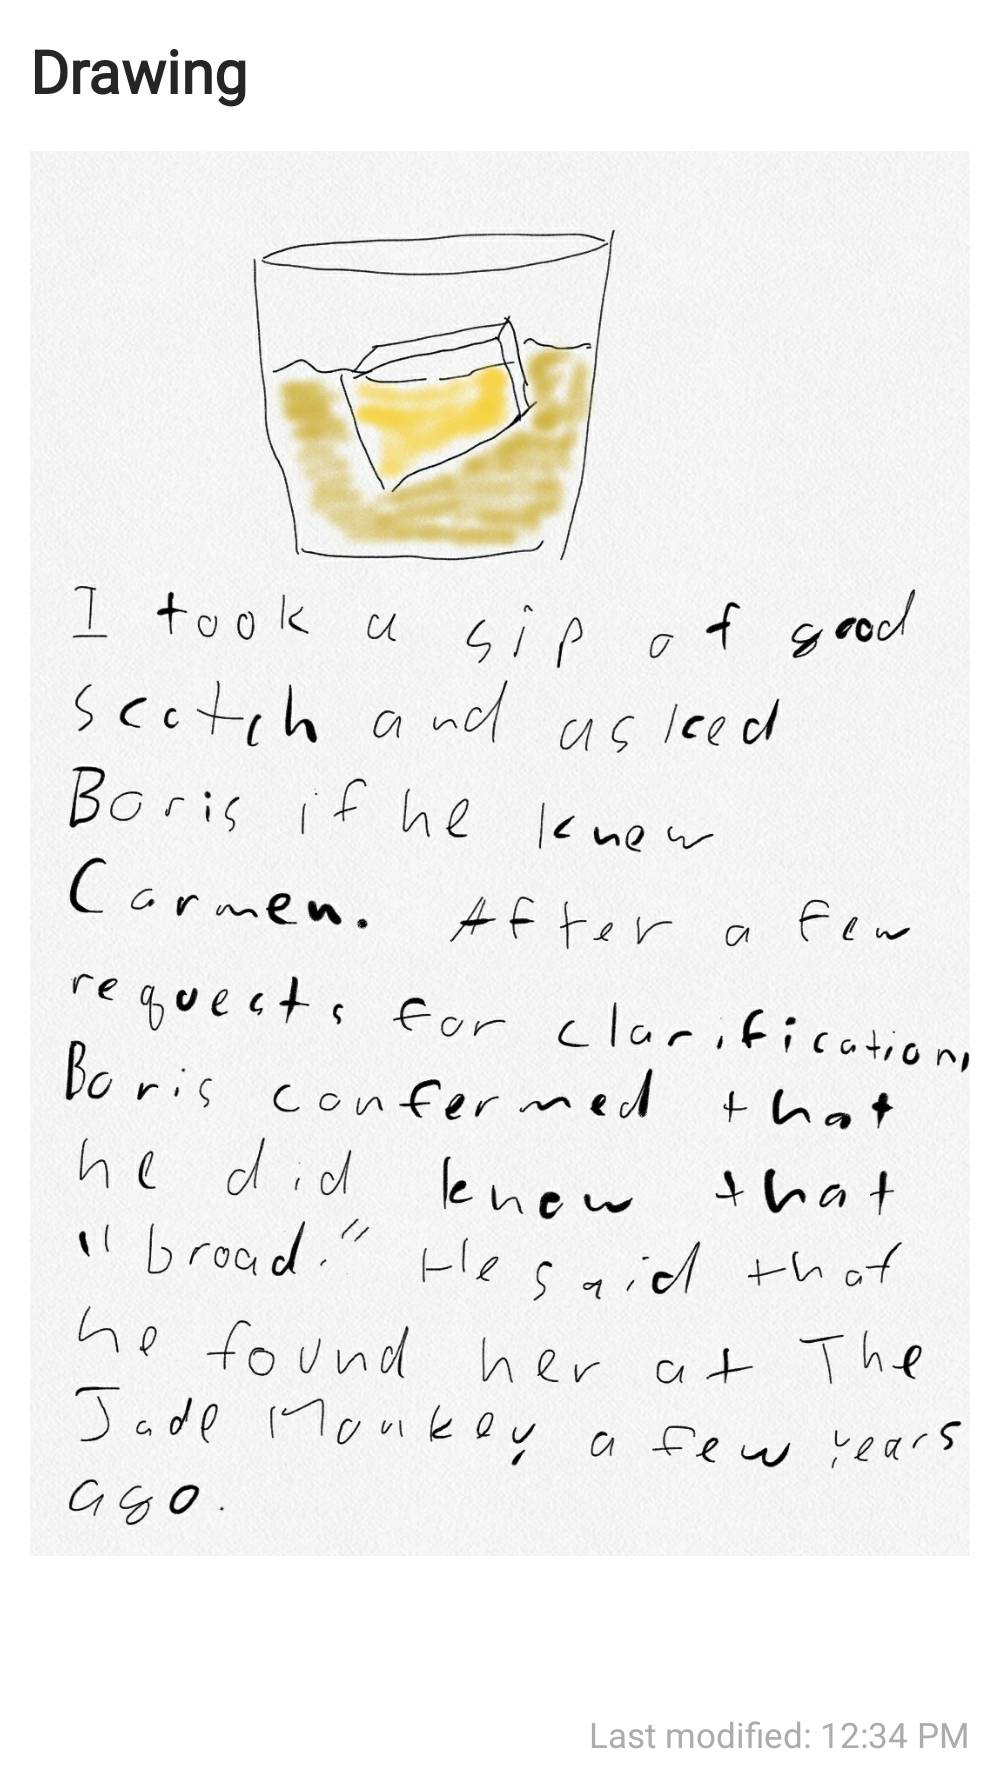 Drawing
I took a sip of good
scotch and asked
Boris if he knew
Carmen. After a few
requests for clarification,
Boris confermed that
he did know that
"broad." He said that
he found her at The
Jade Monkey a few years
ago.
Last modified: 12:34 PM